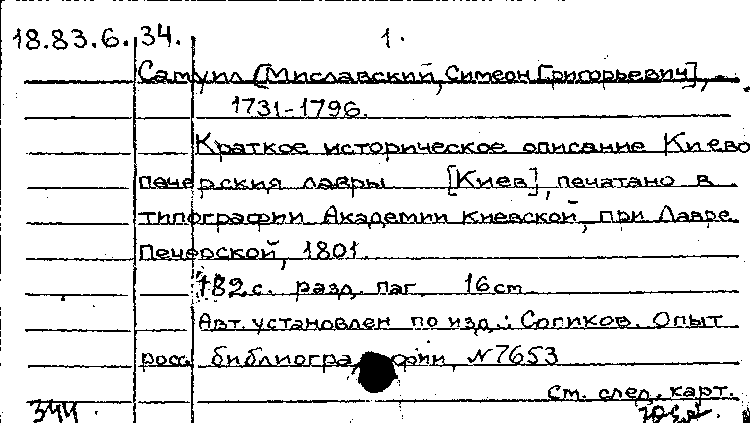 18.83.6.34. 1.
Самуил [Миславский, Симеон Григорьевич],
1731-1796.
Краткое историческое описание Киево
печерския лавры [Киев], печатано в
типографии Академии киевской, при Лавре
Печерской, 1801.
182 с. разд. паг. 16см
Авт. установлен по изд.: Сопиков. Опыт
росс. библиографии, №7653
см. след. карт.
344.